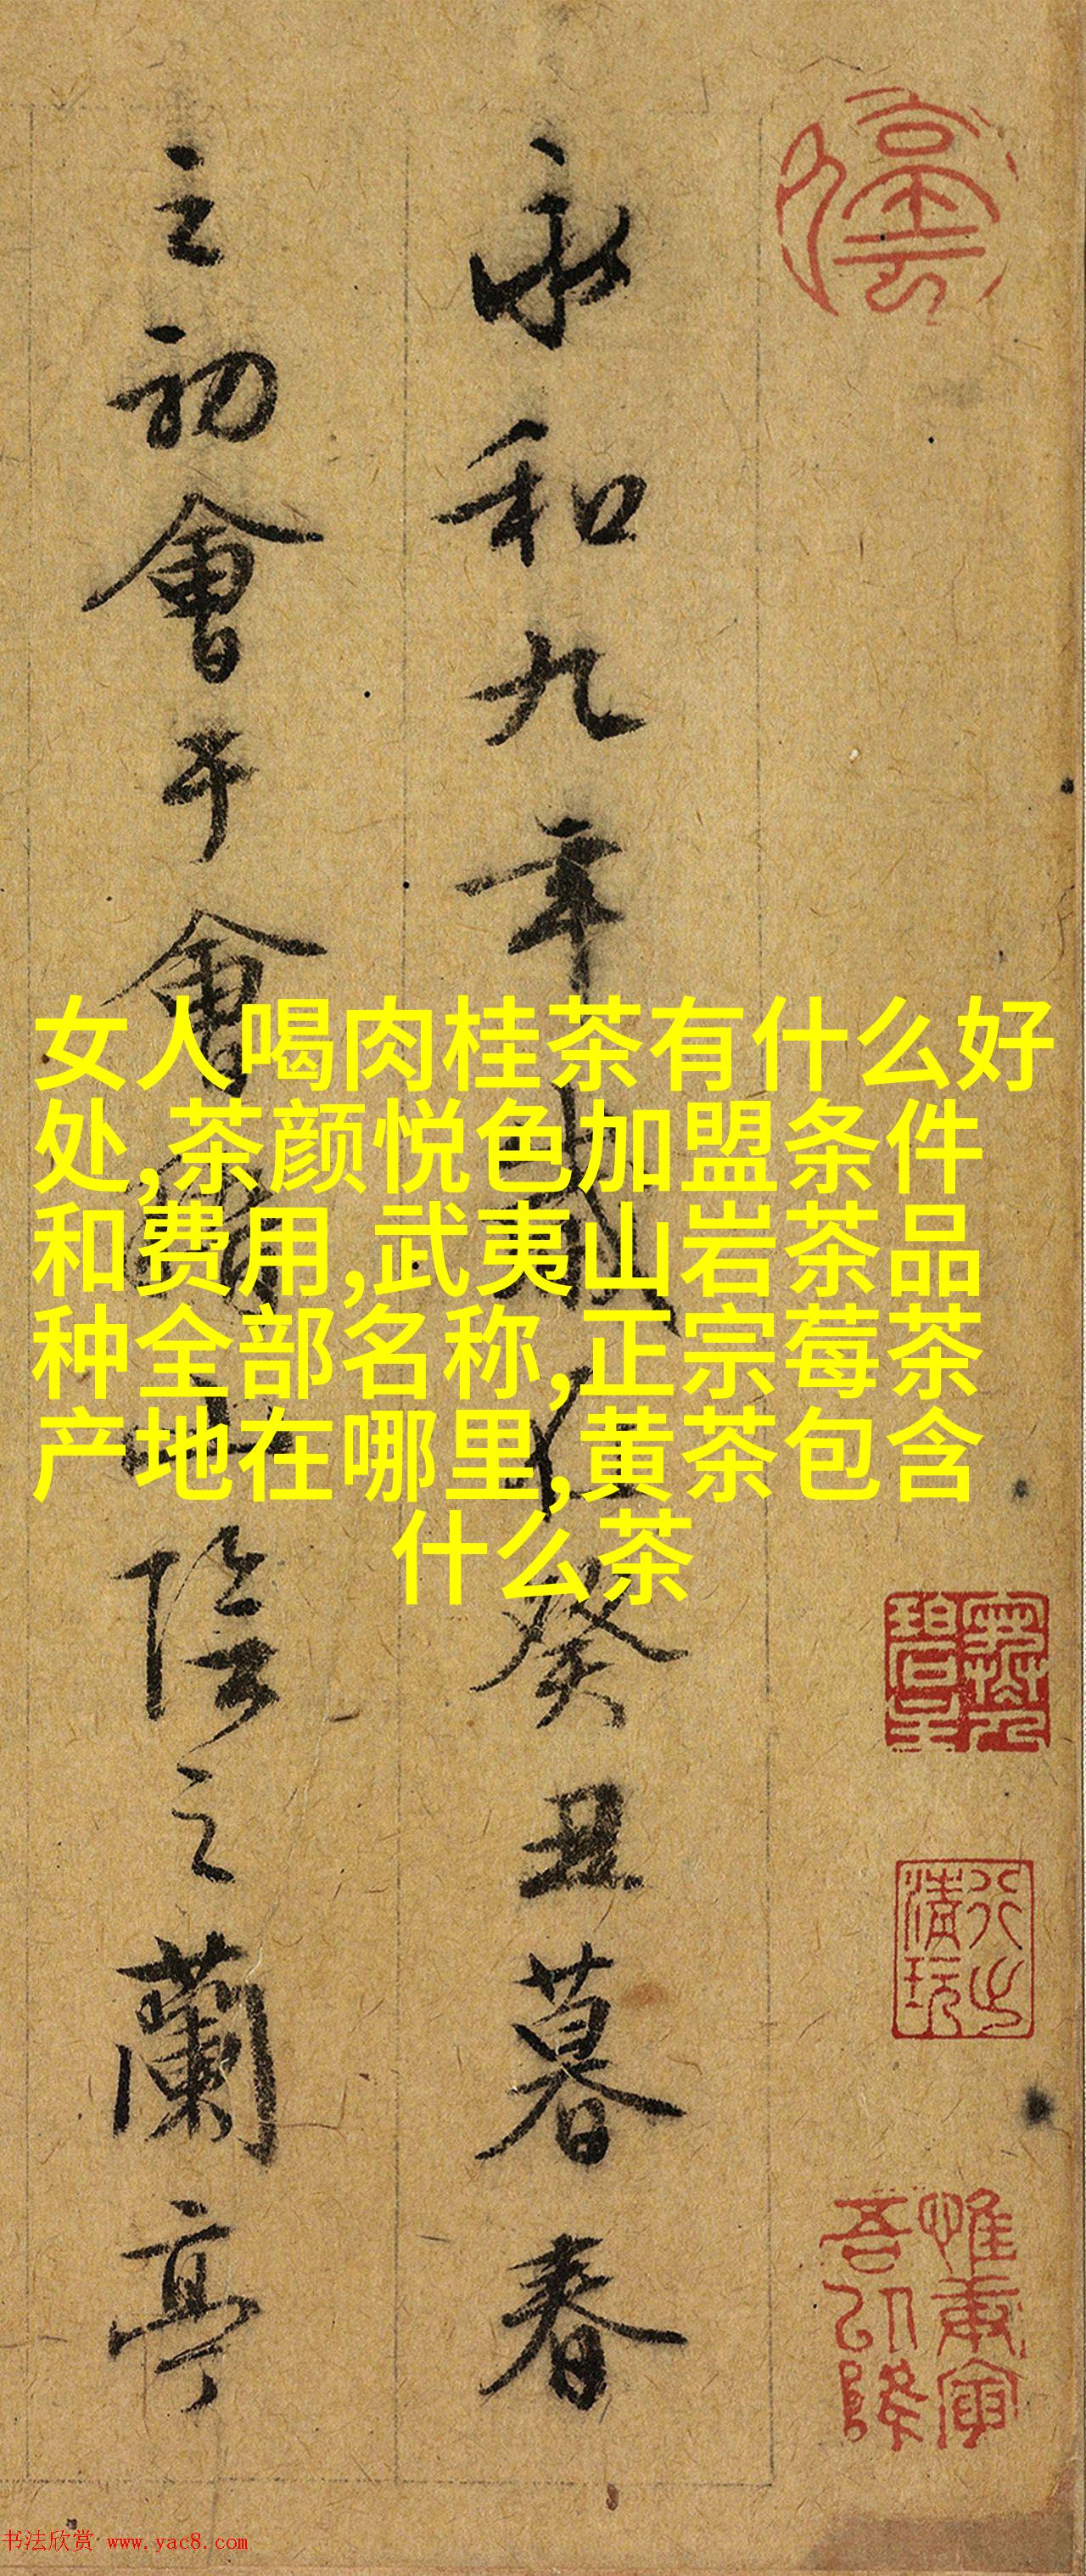 永和九年歲在癸丑暮春
之初會于會稽山陰之蘭亭
女人喝肉桂茶有什么好
处,茶颜悦色加盟条件
和费用,武夷山岩茶品
种全部名称,正宗莓茶
产地在哪里,黄茶包含
什么茶
惟庚寅
吾以降
书法欣赏 www.yac8.com